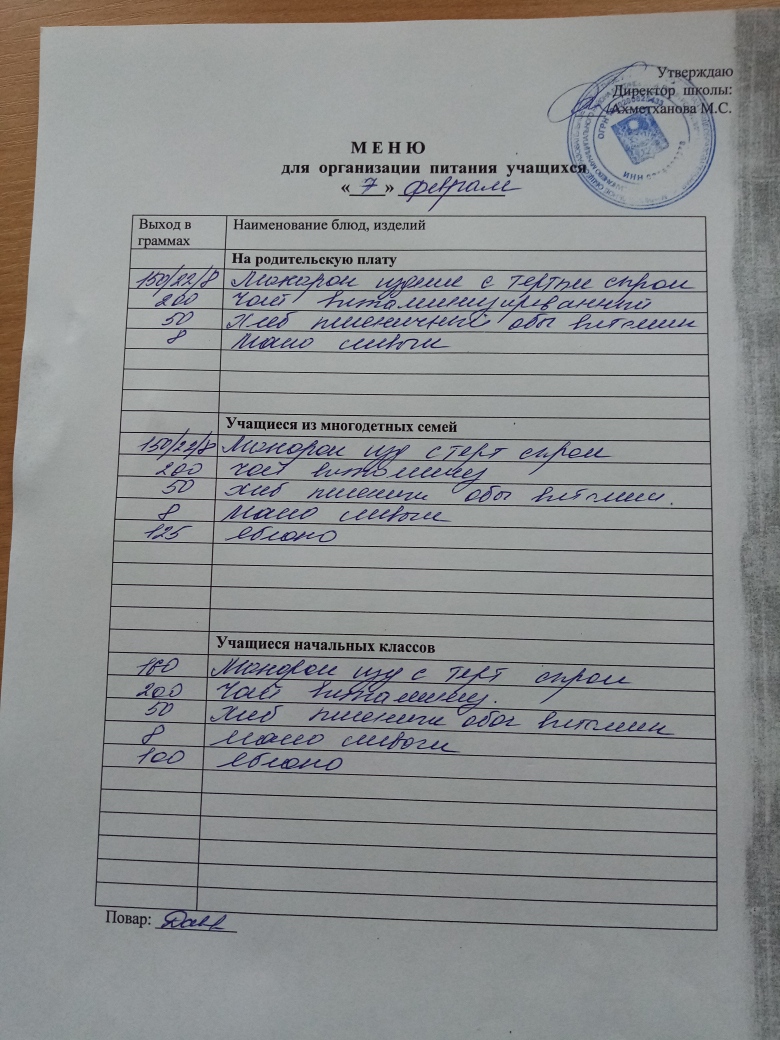 Утверждаю
Директор школы:
Ахметханова М.С.
М Е Н Ю
для организации питания учащихся
« 7 » февраля
Выход в граммах Наименование блюд, изделий
На родительскую плату
150/22/8 Макарон изделие с тертым сыром
200 Чай витаминизированный
50 Хлеб пшеничный обог витамин
8 Масло сливоч
Учащиеся из многодетных семей
150/22/8 Макарон изд с терт сыром
200 Чай витаминиз
50 Хлеб пшенич обог витамин.
8 Масло сливоч
125 Яблоко
Учащиеся начальных классов
Макарон изд с терт сыром
200 Чай витаминиз.
50 Хлеб пшенич обог витамин
8 масло сливоч
100 Яблоко
Повар: